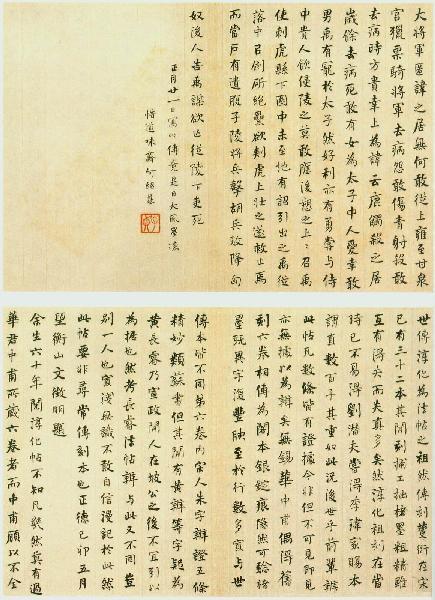 大將軍匿諱之居無何敢從上雍至甘泉
官獵票騎將軍去病怨敢傷青射殺敢
去病時方貴幸上為諱云鹿觸殺之居
歲餘去病死敢有女為太子中人愛幸敢
男禹有寵於太子然好利亦有勇嘗與侍
中貴人飲侵陵之莫敢應後愬之上上召禹
使刺虎縣下圈中未至地有詔引出之禹從
落中以劍斫絕纍欲刺虎上壯之遂救止焉
而當戶有遺腹子陵將兵擊胡兵敗降匈
奴後人告禹謀欲亡從陵下吏死
正月廿一日寫傳竟是日大風寒凍
惜道味齋
世傳淳化為法帖之祖然傳刻蔓衍在宋
已有三十二本其間刻搨工拙楮墨粗精雖
互有得失而失真多矣然淳化祖刻在當
時已不易得劉潛夫嘗得李瑋家賜本
謂直數百千其重如此況後世乎前輩辨
此帖凡數條皆有證據今非但不可見即見
亦無據以為辨矣無錫華中甫偶得舊
刻六卷相傳為閣本銀錠痕隱然可驗
墨異字復豐腴至於行數多寡與世
傳本皆不同第六卷內宋人朱字辨證五條
精妙類蘇書但其間有黃辨等字疑為
黃長睿乃宣政間人在坡公之後不宜引以
為據也然考長睿法帖辨與此又不同豈
別一人也寡淺識不敢自信漫記於此然
此帖要非尋常傳刻本也正德己卯五月
望衡山文徵明題
余生六十年閱淳化帖不知凡幾然莫有過
華君中甫所藏六卷者而中甫顧以不全